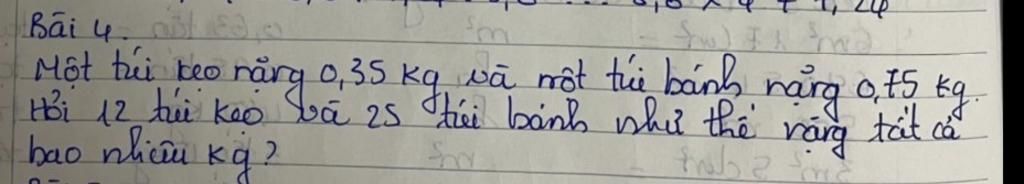 0,6 x 4 + 1,24
Bài 4.
Một túi kẹo nặng 0,35 kg và một túi bánh nặng 0,75 kg.
Hỏi 12 túi kẹo và 25 túi bánh như thế nặng tất cả
bao nhiêu kg?